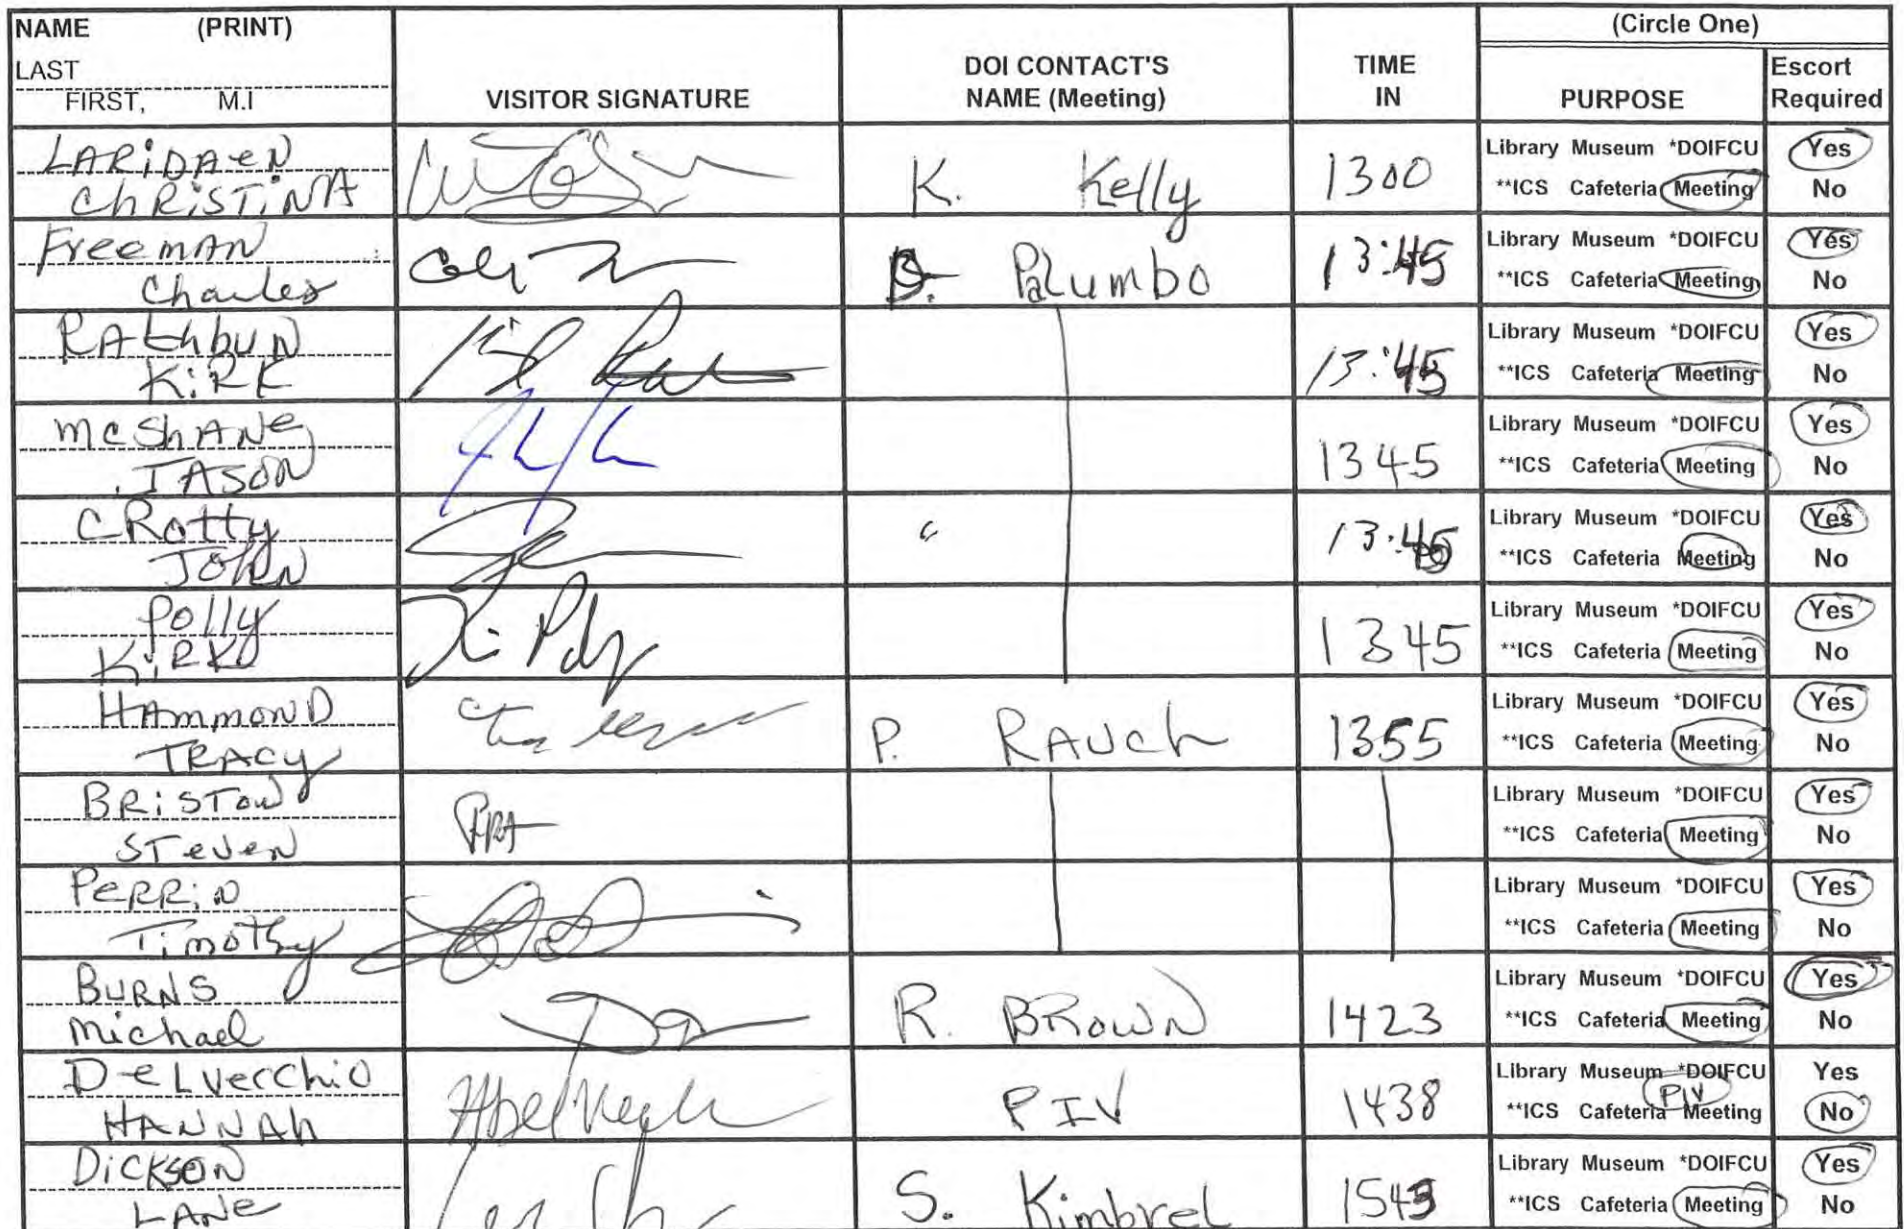 NAME (PRINT)
LAST
FIRST, M.I
VISITOR SIGNATURE
DOI CONTACT'S
NAME (Meeting)
TIME
IN
(Circle One)
PURPOSE
Escort
Required
LARiDAeN
ChRiSTiNA
K. Kelly
1300
Library Museum *DOIFCU
**ICS Cafeteria Meeting
Yes
No
FreemAN
Charles
D. Palumbo
13:45
Library Museum *DOIFCU
**ICS Cafeteria Meeting
Yes
No
RAthbuN
KiRK
13:45
Library Museum *DOIFCU
**ICS Cafeteria Meeting
Yes
No
mcShANe
JASON
1345
Library Museum *DOIFCU
**ICS Cafeteria Meeting
Yes
No
CRotty
JOHN
13:45
Library Museum *DOIFCU
**ICS Cafeteria Meeting
Yes
No
Polly
KiRK
1345
Library Museum *DOIFCU
**ICS Cafeteria Meeting
Yes
No
HAmmOND
TRACy
P. RAUCh
1355
Library Museum *DOIFCU
**ICS Cafeteria Meeting
Yes
No
BRiSTOW
STeveN
Library Museum *DOIFCU
**ICS Cafeteria Meeting
Yes
No
PeRRiN
Timothy
Library Museum *DOIFCU
**ICS Cafeteria Meeting
Yes
No
BURNS
Michael
R. BROWN
1423
Library Museum *DOIFCU
**ICS Cafeteria Meeting
Yes
No
DeLVecchio
HANNAh
PIV
1438
Library Museum *DOIFCU
PIV
**ICS Cafeteria Meeting
Yes
No
DiCKSON
LANe
S. Kimbrel
1543
Library Museum *DOIFCU
**ICS Cafeteria Meeting
Yes
No